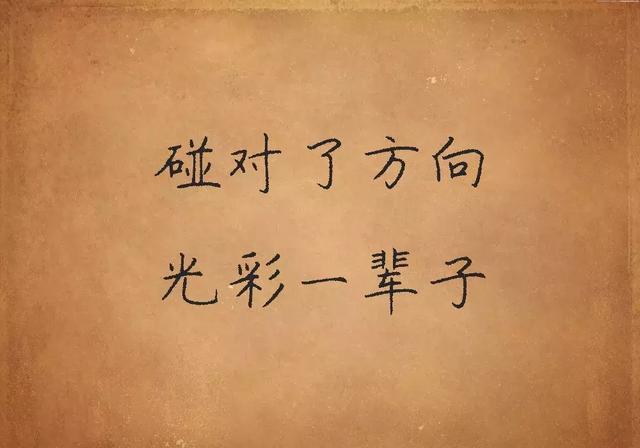 碰对了方向
光彩一辈子